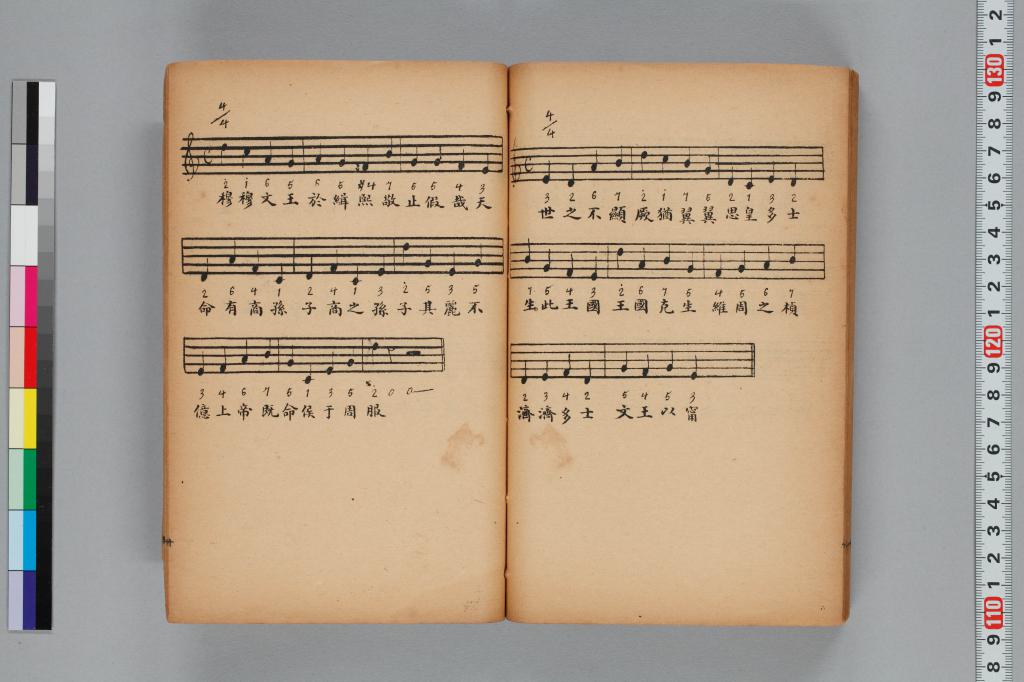 4/4
2 1 6 5 6 5 #4 7 5 5 4 3
穆穆文王於緝熙敬止假哉天
2 6 4 1 2 4 1 3 2 5 3 5
命有商孫子商之孫子其麗不
3 4 6 7 5 1 3 5 2 0 0—
億上帝既命侯于周服
4/4
3 2 6 7 2 1 7 5 2 1 3 2
世之不顯厥猶翼翼思皇多士
7 5 4 3 2 6 1 5 4 5 6 7
生此王國王國克生維周之楨
2 3 4 2 5 4 5 3
濟濟多士文王以甯
2 1 130 9 8 7 6 5 4 3 2 1 120 9 8 7 6 5 4 3 2 1 110 9 8